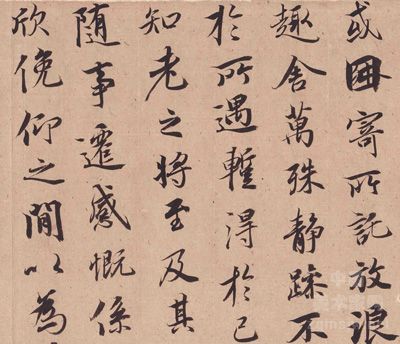 或因寄所託放浪
趣舍萬殊静躁不
於所遇蹔得於己
知老之將至及其
隨事遷感慨係
欣俛仰之間以為